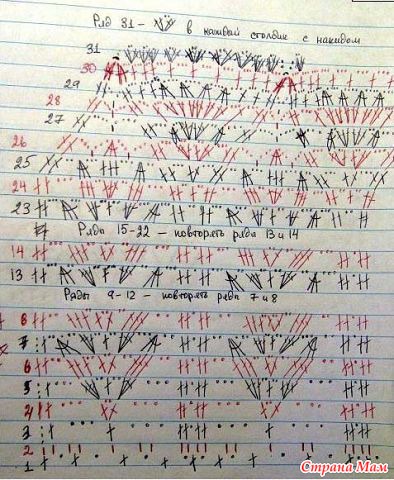 Ряд 31 - в каждый столбик с накидом
31
30
29
28
27
26
25
24
23
Ряды 15-22 - повторять ряда 13 и 14
14
13
Ряды 9-12 - повторять ряда 7 и 8
8
7
6
5
4
3
2
1
Страна Мам